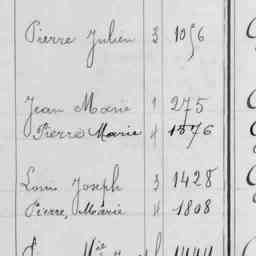 Pierre Julien 3 1056
Jean Marie 1 275
Pierre Marie 4 1576
Louis Joseph 3 1428
Pierre, Marie 4 1808